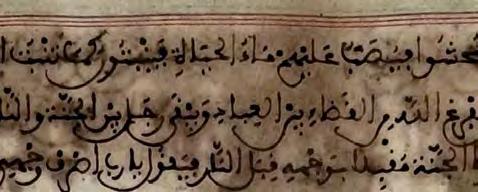 فيصب عليهم ماء الحياة فينبتون كما تنبت
يفرغ الله من القضاء بين العباد ويبقى رجل بين الجنة
الجنة مقبلا بوجهه قبل النار فيقول يا رب اصرف وجهي